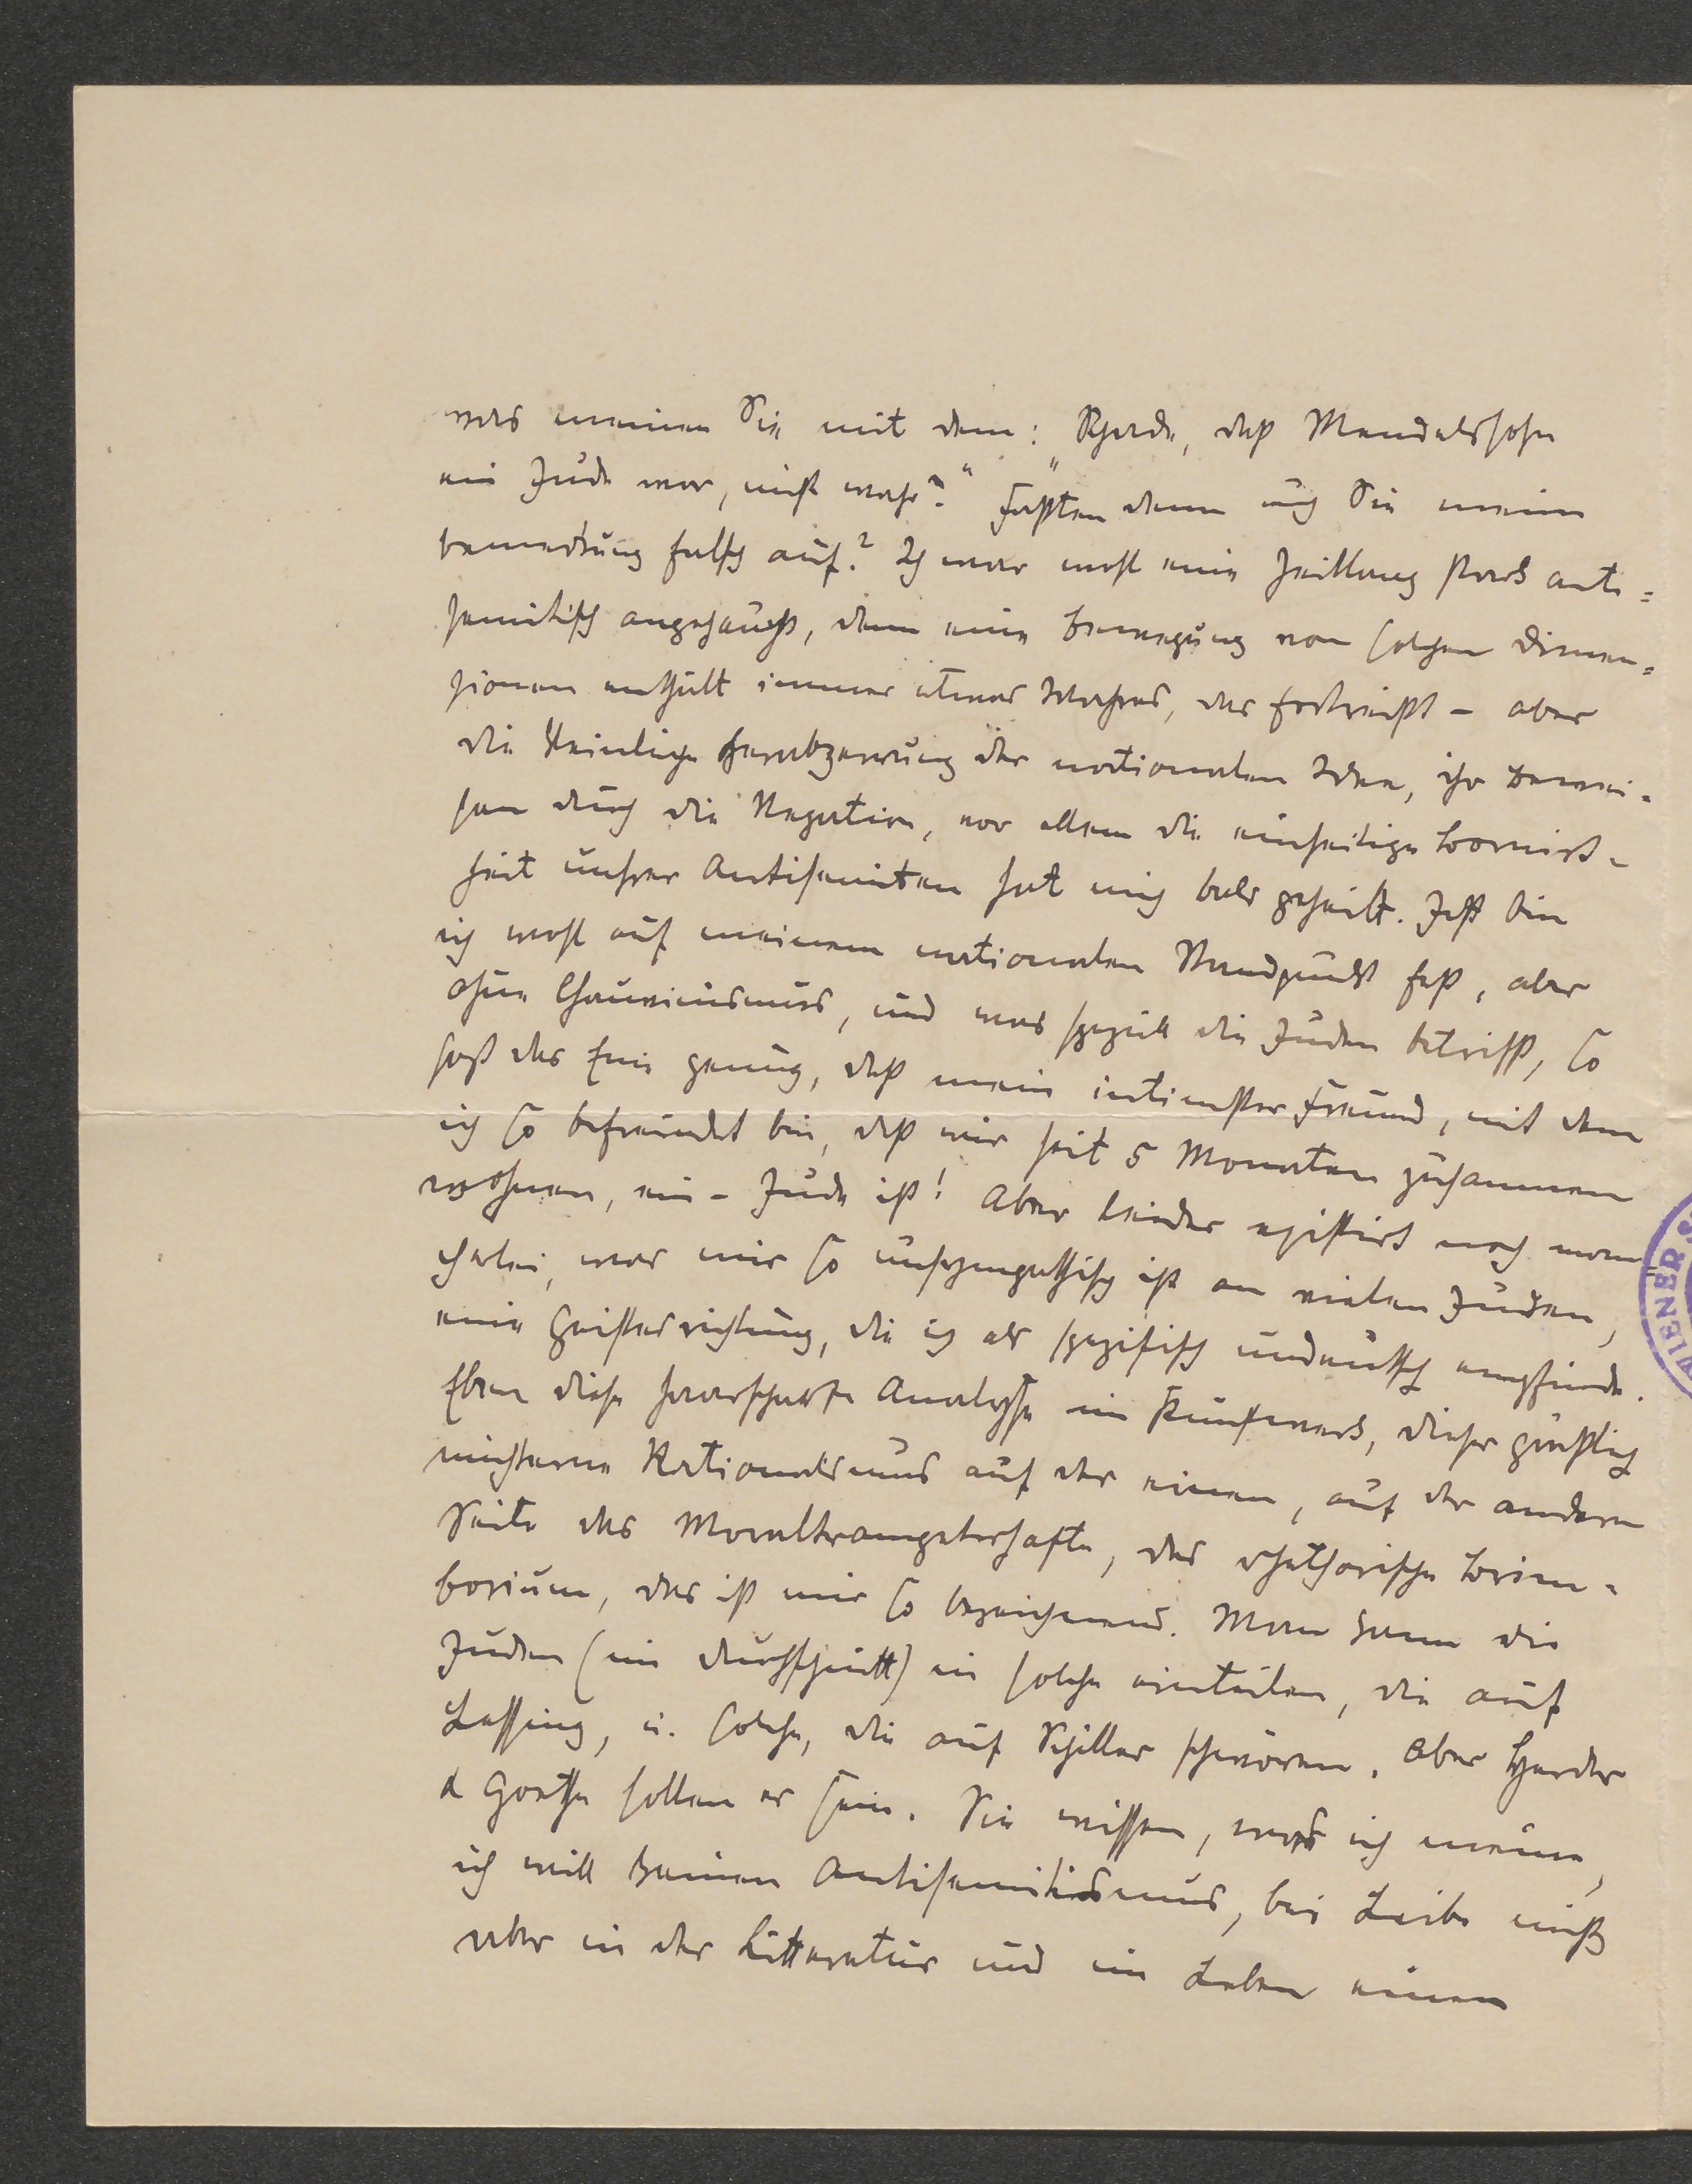 was meinen Sie mit dem: „Schade, daß Mendelssohn
ein Jude war, nicht wahr?“ Faßten denn auch Sie meine
Bemerkung falsch auf? Ich war wohl eine Zeitlang stark anti=
semitisch angehaucht, denn eine Bewegung von solchen Dimen=
sionen enthält immer etwas Wahres, das fortreißt – aber
die kleinliche Herabzerrung der nationalen Idee, ihr Bewei=
sen durch die Negation, vor allem die einseitige Borniert=
heit unsrer Antisemiten hat mich bald geheilt. Jetzt bin
ich wohl auf meinem nationalen Standpunkt fest, aber
ohne Chauvinismus, und was speziell die Juden betrifft, so
sagt das Eine genug, daß mein intimster Freund, mit dem
ich so befreundet bin, daß wir seit 5 Monaten zusammen
wohnen, ein – Jude ist! Aber leider existirt noch man=
cherlei, was mir so unsympathisch ist an vielen Juden,
eine Geistesrichtung, die ich als spezifisch undeutsch empfinde.
Eben diese haarscharfe Analyse im Kunstwerk, dieser gräßlich
nüchterne Rationalismus auf der einen, auf der andern
Seite das Moraltrompeterhafte, das rhethorische Brim=
borium, das ist mir so bezeichnend. Man kann die
Juden (im Durchschnitt) in solche einteilen, die auf
Lessing, u. solche, die auf Schiller schwören. Aber Herder
& Goethe sollen es sein. Sie wissen, was ich meine,
ich will keinen Antisemitismus, bei Leibe nicht
aber in der Litteratur und im Leben einen
WIENER S